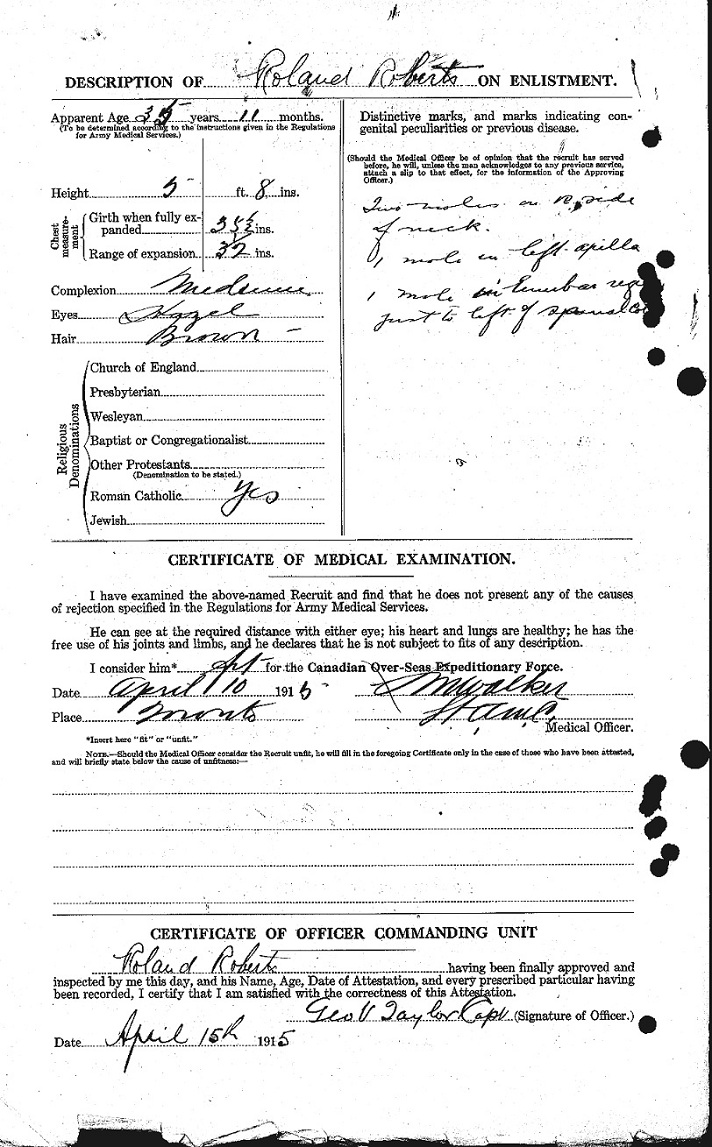 DESCRIPTION OF Roland Roberts ON ENLISTMENT.
Apparent Age 35 years 11 months.
(To be determined according to the instructions given in the Regulations
for Army Medical Services.)
Height 5 ft. 8 ins.
Chest measurement
Girth when fully expanded 35½ ins.
Range of expansion ins.
Complexion Medium
Eyes Hazel
Hair Brown
Religious Denominations
Church of England
Presbyterian
Wesleyan
Baptist or Congregationalist
Other Protestants
(Denomination to be stated.)
Roman Catholic Yes
Jewish
Distinctive marks, and marks indicating con-
genital peculiarities or previous disease.
(Should the Medical Officer be of opinion that the recruit has served
before, he will, unless the man acknowledges to any previous service,
attach a slip to that effect, for the information of the Approving
Officer.)
Two moles on R. side
of neck.
1 mole in left axilla
1 mole in Lumbar
just to left of spinal
CERTIFICATE OF MEDICAL EXAMINATION.
I have examined the above-named Recruit and find that he does not present any of the causes
of rejection specified in the Regulations for Army Medical Services.
He can see at the required distance with either eye; his heart and lungs are healthy; he has the
free use of his joints and limbs, and he declares that he is not subject to fits of any description.
I consider him* fit for the Canadian Over-Seas Expeditionary Force.
Date April 10 1915 Walker
Place Toronto
Medical Officer.
*Insert here "fit" or "unfit."
NOTE.—Should the Medical Officer consider the Recruit unfit, he will fill in the foregoing Certificate only in the case of those who have been attested,
and will briefly state below the cause of unfitness:—
CERTIFICATE OF OFFICER COMMANDING UNIT
Roland Roberts having been finally approved and
inspected by me this day, and his Name, Age, Date of Attestation, and every prescribed particular having
been recorded, I certify that I am satisfied with the correctness of this Attestation.
Geo V Taylor Capt. (Signature of Officer.)
Date April 15th 1915